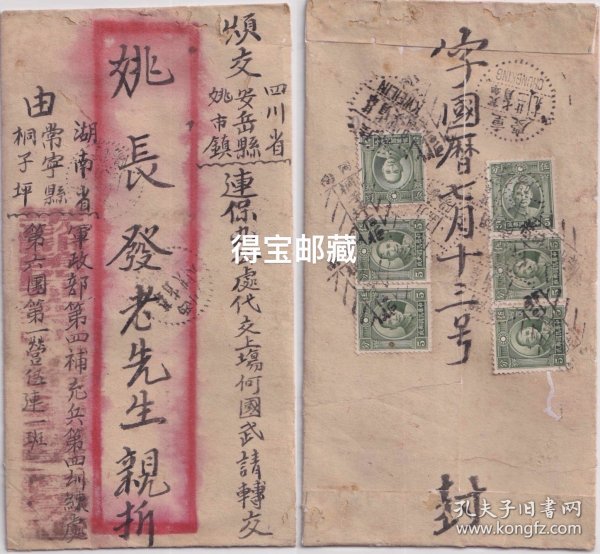 煩交
四川省
安岳縣
姚市鎮
連保辦處代交上場何國武請轉交
姚長發老先生親拆
由
湖南省
常寧縣
桐子坪
軍政部第四補充兵第四訓練處
第六團第一營伍連一班
字國曆七月十三号
封
CHUNGKING
KWEILIN
得宝邮藏
得宝邮藏
孔夫子旧书网
www.kongfz.com